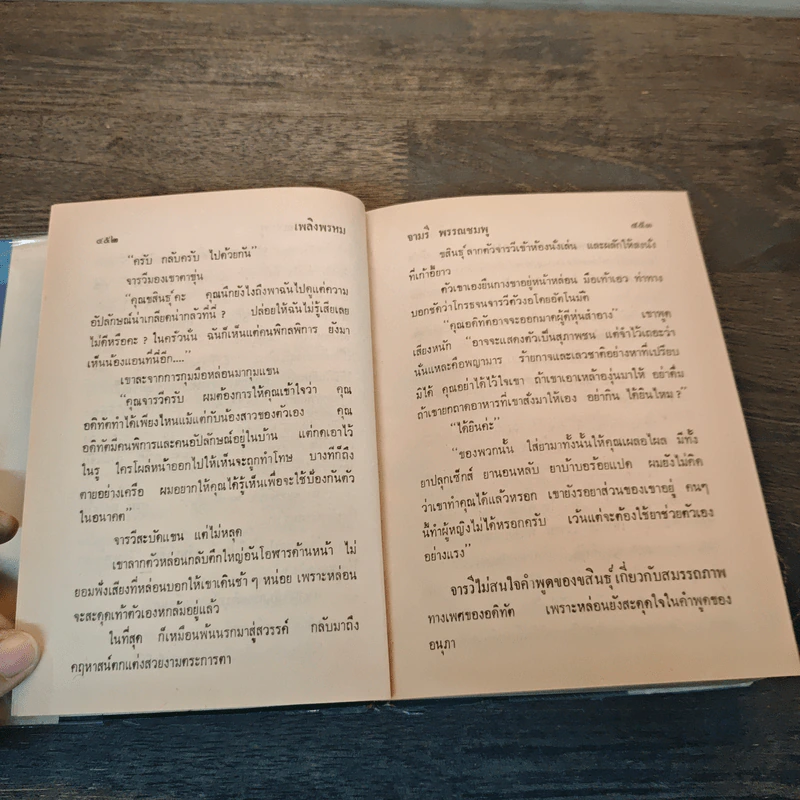 ๔๕๒ เพลิงพรหม
"ครับ กลับครับ ไปด้วยกัน"
จารวีมองเขาตาขุ่น
"คุณขสินธุ์คะ คุณนึกยังไงถึงพาฉันไปดูแต่ความ
อัปลักษณ์น่าเกลียดน่ากลัวที่นี่ ? ปล่อยให้ฉันไม่รู้เสียเลย
ไม่ดีหรือคะ ? ในครัวนั่น ฉันก็เห็นแต่คนพิกลพิการ ยังมา
เห็นน้องแอนที่นี่อีก...."
เขาละจากการกุมมือหล่อนมากุมแขน
"คุณจารวีครับ ผมต้องการให้คุณเข้าใจว่า คุณ
อติทัตทำได้เพียงไหนแม้แต่กับน้องสาวของตัวเอง คุณ
อติทัตมีคนพิการและคนอัปลักษณ์อยู่ในบ้าน แต่กดเอาไว้
ในรู ใครโผล่หน้าออกไปให้เห็นจะถูกทำโทษ บางทีก็ถึง
ตายอย่างเครือ ผมอยากให้คุณได้รู้เห็นเพื่อจะใช้ป้องกันตัว
ในอนาคต"
จารวีสะบัดแขน แต่ไม่หลุด
เขาลากตัวหล่อนกลับตึกใหญ่อันโอฬารด้านหน้า ไม่
ยอมฟังเสียงที่หล่อนบอกให้เขาเดินช้า ๆ หน่อย เพราะหล่อน
จะสะดุดเท้าตัวเองหกล้มอยู่แล้ว
ในที่สุด ก็เหมือนพ้นนรกมาสู่สวรรค์ กลับมาถึง
คฤหาสน์ตกแต่งสวยงามตระการตา
จามรี พรรณชมพู ๔๕๓
ขสินธุ์ลากตัวจารวีเข้าห้องนั่งเล่น และผลักให้ลงนั่ง
ที่เก้าอี้ยาว
ตัวเขาเองยืนกางขาอยู่หน้าหล่อน มือเท้าเอว ท่าทาง
บอกชัดว่าโกรธจนจารวีตัวงอโดยอัตโนมัติ
"คุณอติทัตอาจจะออกมาดผู้ดีหุ่นสำอาง" เขาพูด
เสียงหนัก "อาจจะแสดงตัวเป็นสุภาพชน แต่จำไว้เถอะว่า
นั่นแหละคือพญามาร ร้ายกาจและเลวชาติอย่างหาที่เปรียบ
มิได้ คุณอย่าได้ไว้ใจเขา ถ้าเขาเอาเหล้าองุ่นมาให้ อย่าดื่ม
ถ้าเขายกถาดอาหารที่เขาสั่งมาให้เอง อย่ากิน ได้ยินไหม ?"
"ได้ยินค่ะ"
"ของพวกนั้น ใส่ยามาทั้งนั้นให้คุณเผลอไผล มีทั้ง
ยาปลุกเซ็กส์ ยานอนหลับ ยาบ้าบอร้อยแปด ผมยังไม่คิด
ว่าเขาทำคุณได้แล้วหรอก เขายังรอยาส่วนของเขาอยู่ คนๆ
นี้ทำผู้หญิงไม่ได้หรอกครับ เว้นแต่จะต้องใช้ยาช่วยตัวเอง
อย่างแรง"
จารวีไม่สนใจคำพูดของขสินธุ์ เกี่ยวกับสมรรถภาพ
ทางเพศของอติทัต เพราะหล่อนยังสะดุดใจในคำพูดของ
อนุภา